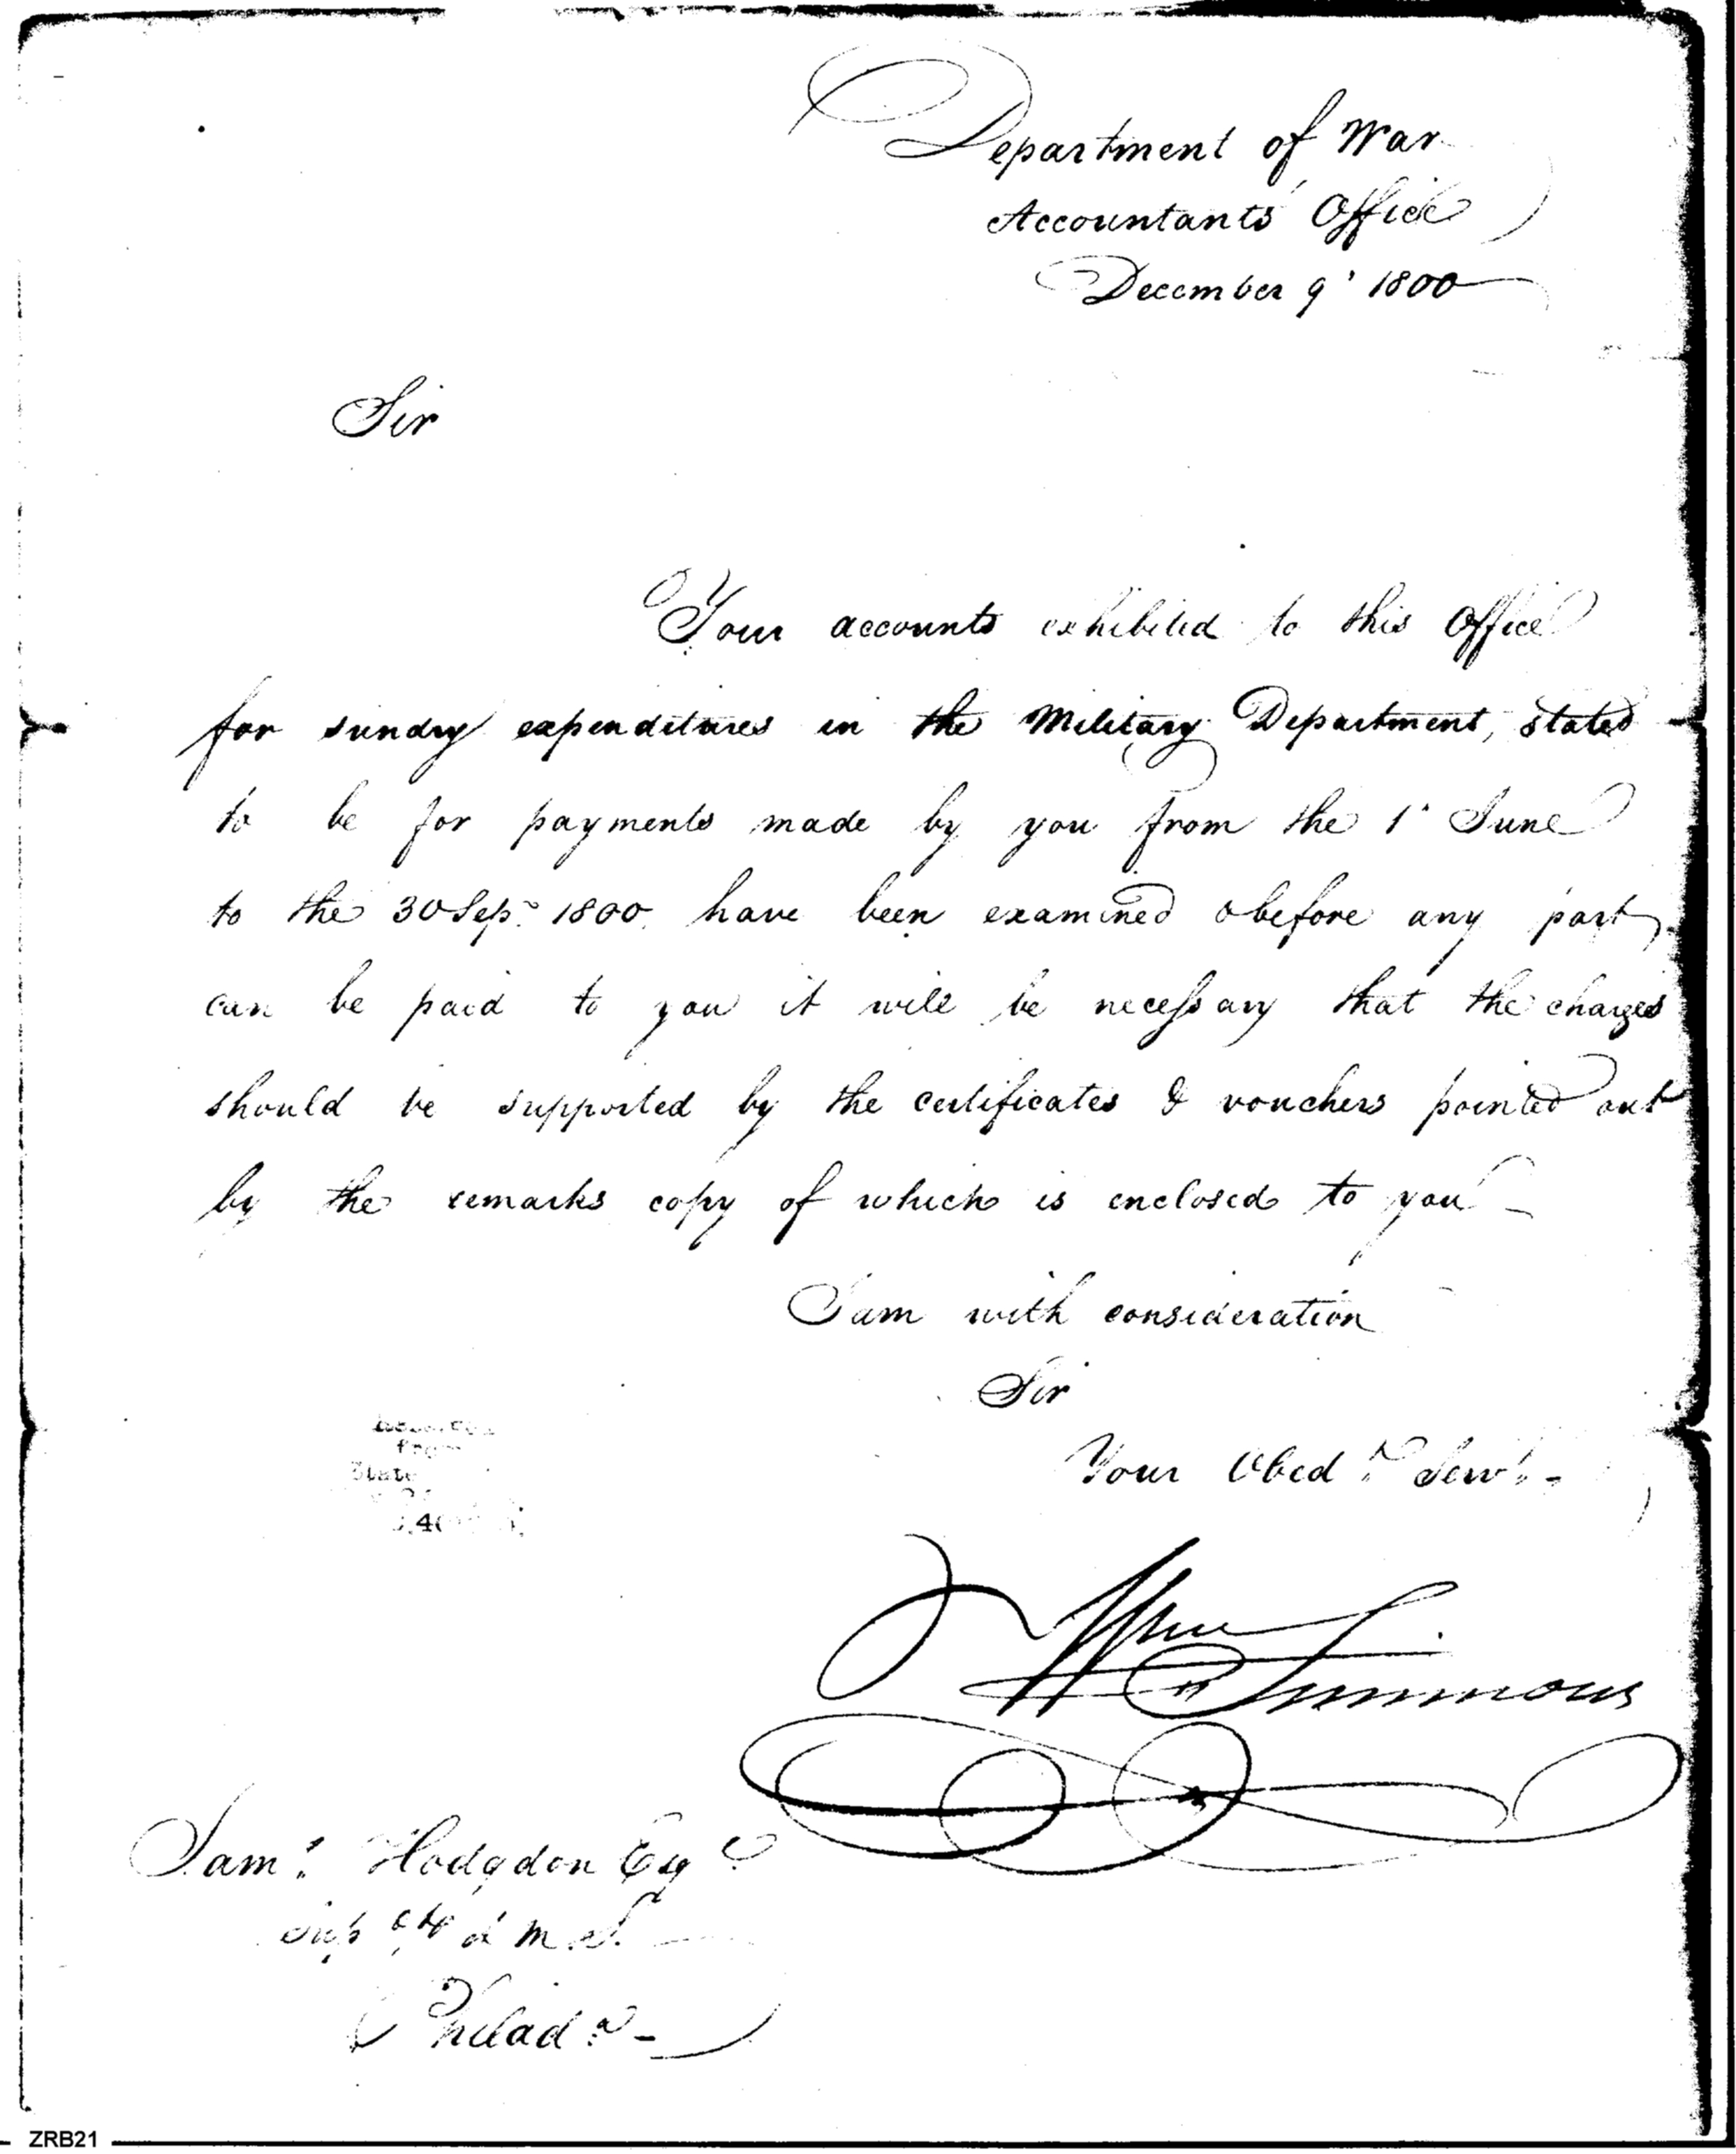 Department of War
Accountants' Office
December 9' 1800
Sir
Your accounts exhibited to this Office
for sundry expenditures in the Military Department, stated
to be for payments made by you from the 1' June
to the 30 Sepr. 1800. have been examined & before any part
can be paid to you it will be necessary that the charges
should be supported by the certificates & vouchers pointed out
by the remarks copy of which is enclosed to you -
I am with consideration
Sir
Your Obedt. Servt. -
Wm Simmons
State
Saml. Hodgdon Esqe.
M. S.
Philada. -
ZRB21